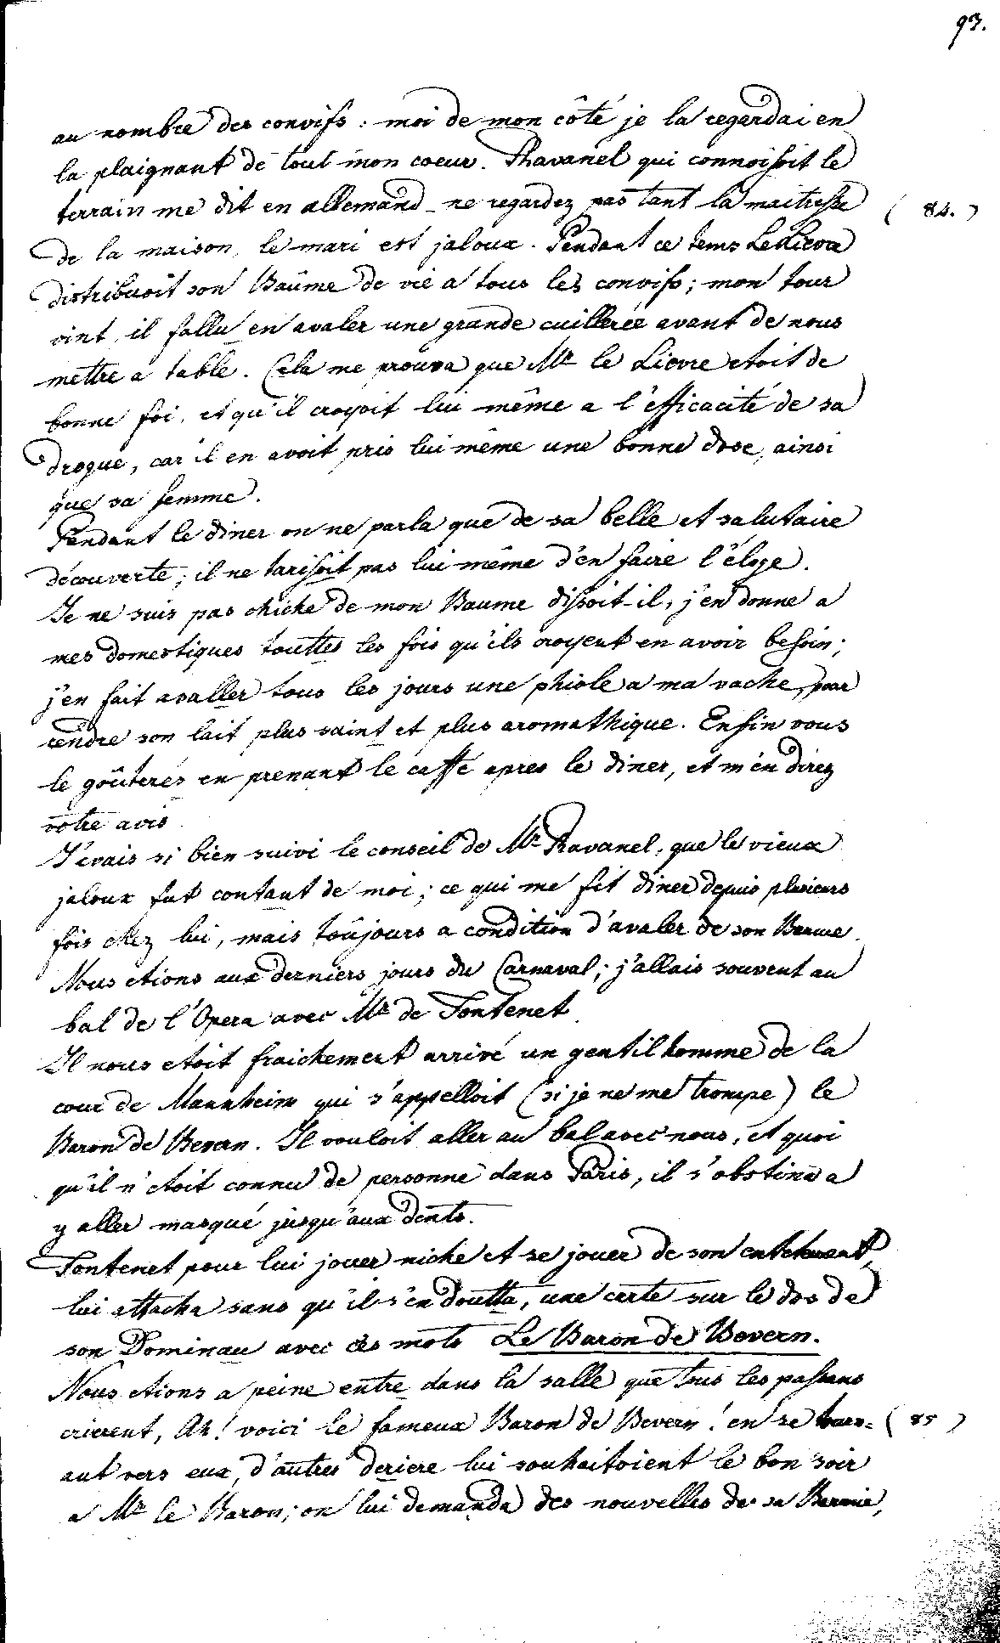 93.
au nombre des convifs : moi de mon côté je la regardai en
la plaignant de tout mon coeur. Ravanel qui connoissoit le
terrain me dit en allemand - ne regardez pas tant la maitresse
( 84. )
de la maison, le mari est jaloux. Pendant ce tems Le Lievre
distribuoit son Baûme de vie a tous les convifs ; mon tour
vint, il fallu en avaler une grande cuillerée avant de nous
mettre a table. Cela me prouva que Mr le Lievre etoit de
bonne foi, et qu'il croyoit lui même a l'efficacité de sa
drogue, car il en avoit pris lui même une bonne dose, ainsi
que sa femme.
Pendant le diner on ne parla que de sa belle et salutaire
découverte ; il ne tarissoit pas lui même d'en faire l'éloge.
Je ne suis pas chiche de mon Baume dissoit-il, j'en donne a
mes domestiques touttes les fois qu'ils croyent en avoir besoin ;
j'en fait avaller tous les jours une phiole a ma vache, par
rendre son lait plus saint et plus aromathique. Enfin vous
le goûterés en prenant le caffé apres le diner, et m'en direz
votre avis.
J'avais si bien suivi le conseil de Mr Ravanel, que le vieux
jaloux fut contant de moi ; ce qui me fit diner depuis plusieurs
fois chez lui, mais toûjours a condition d'avaler de son Barme.
Nous etions aux derniers jours du Carnaval ; j'allais souvent au
bal de l'Opera avec Mr de Fontenet.
Il nous etoit fraichement arrivé un gentilhomme de la
cour de Mannheim qui s'appelloit (si je ne me trompe) le
Baron de Bevern. Il vouloit aller au bal avec nous, et quoi
qu'il n'etoit connu de personne dans Paris, il s'obstina a
y aller masqué jusqu'aux dents.
Fontenet pour lui jouer niche et se jouer de son entetement,
lui attacha sans qu'il s'en doutta, une carte sur le dos de
son Dominau avec ces mots Le Baron de Bevern.
Nous etions a peine entre dans la salle que tous les passans
crierent, Ah ! voici le fameux Baron de Bevern ! en se tourn=
( 85 )
ant vers eux, d'autres deriere lui souhaitoient le bon soir
a Mr le Baron ; on lui demanda des nouvelles de sa